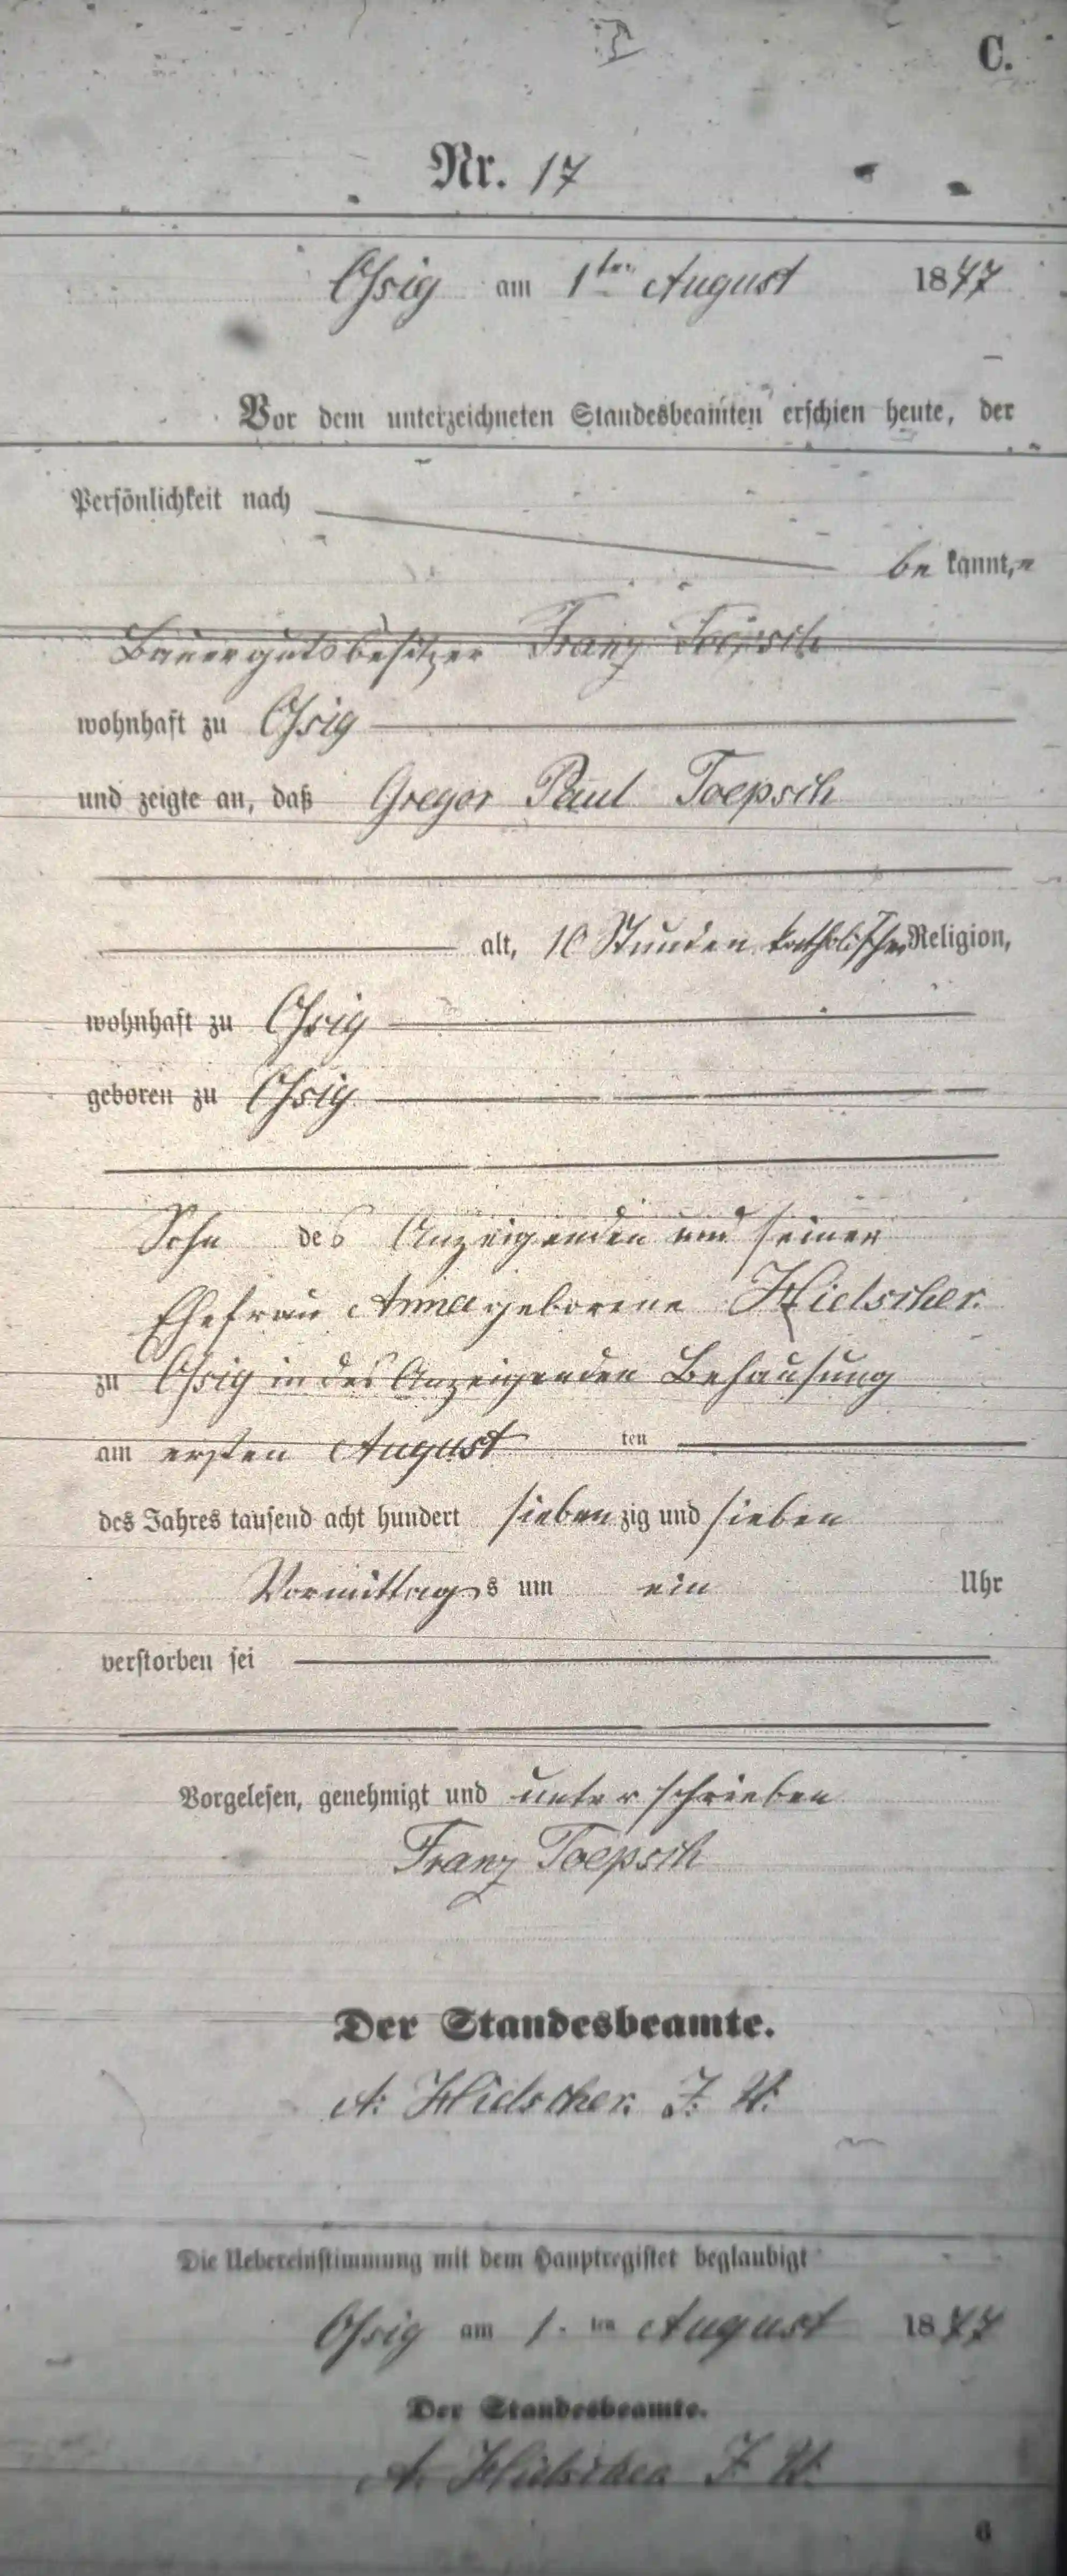 C.
Nr. 17
Ossig am 1ten August 1877
Vor dem unterzeichneten Standesbeamten erschien heute, der
Persönlichkeit nach
be kannt,
Bauergutsbesitzer Franz Toepsch
wohnhaft zu Ossig
und zeigte an, daß Gregor Paul Toepsch
alt, 10 Stunden katholischer Religion,
wohnhaft zu Ossig
geboren zu Ossig
Sohn des Anzeigenden und seiner
Ehefrau Anna geborene Hielscher.
zu Ossig in des Anzeigenden Behausung
am ersten August ten
des Jahres tausend acht hundert siebenzig und sieben
Vormittags um ein Uhr
verstorben sei
Vorgelesen, genehmigt und unterschrieben
Franz Toepsch
Der Standesbeamte.
A. Hielscher.
Die Uebereinstimmung mit dem Hauptregister beglaubigt
Ossig am 1. ten August 1877
Der Standesbeamte.
A. Hielscher
6